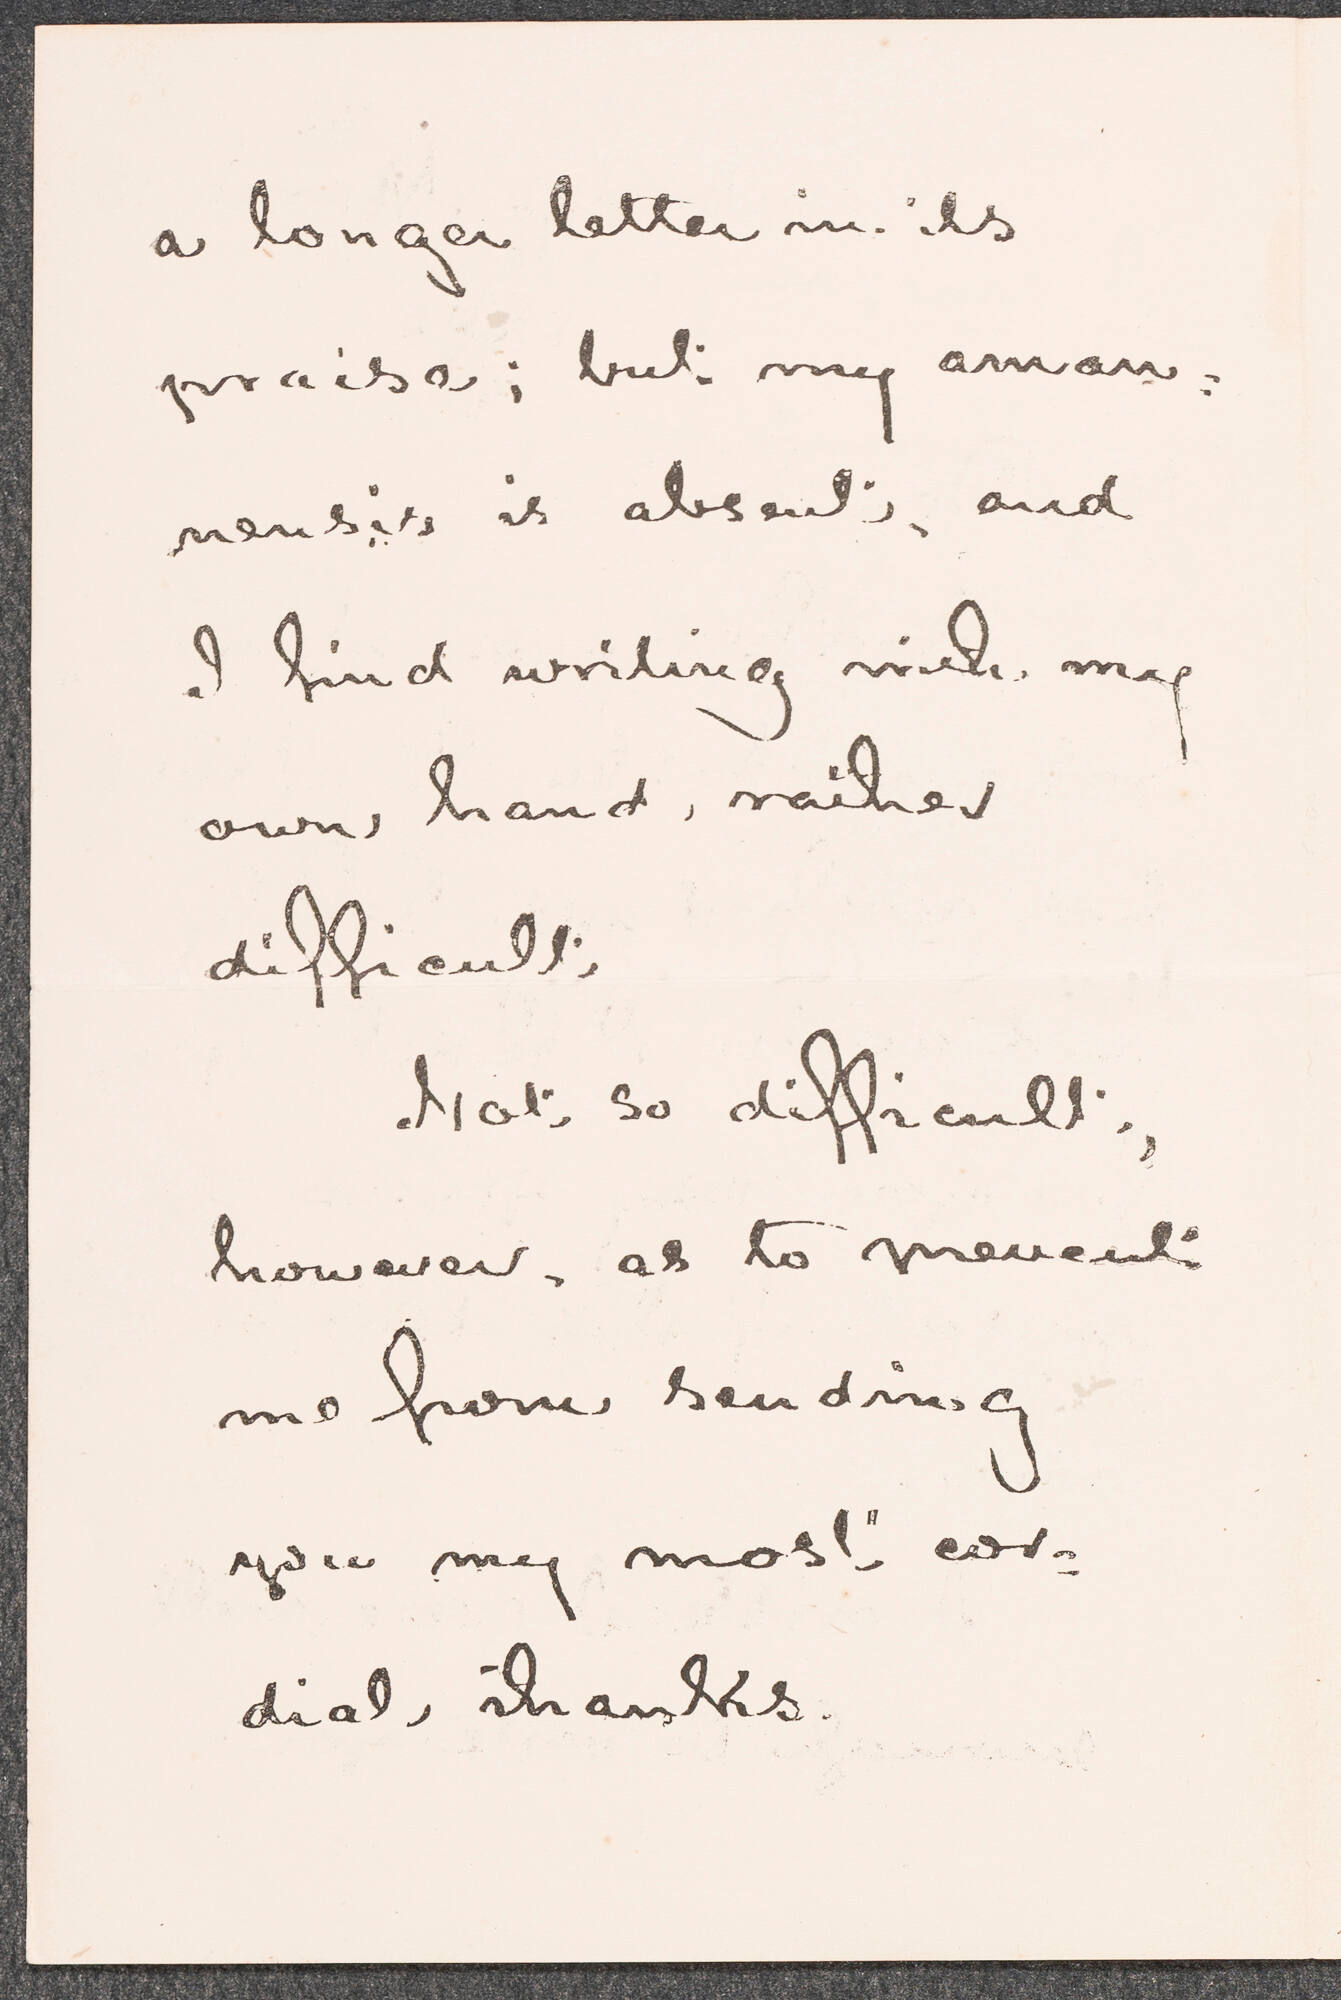 a longer letter in its
praise; but my aman=
nensis is absent, and
I find writing with my
own hand, rather
difficult.
Not so difficult,
however, as to prevent
me from sending
you my most cor=
dial thanks.